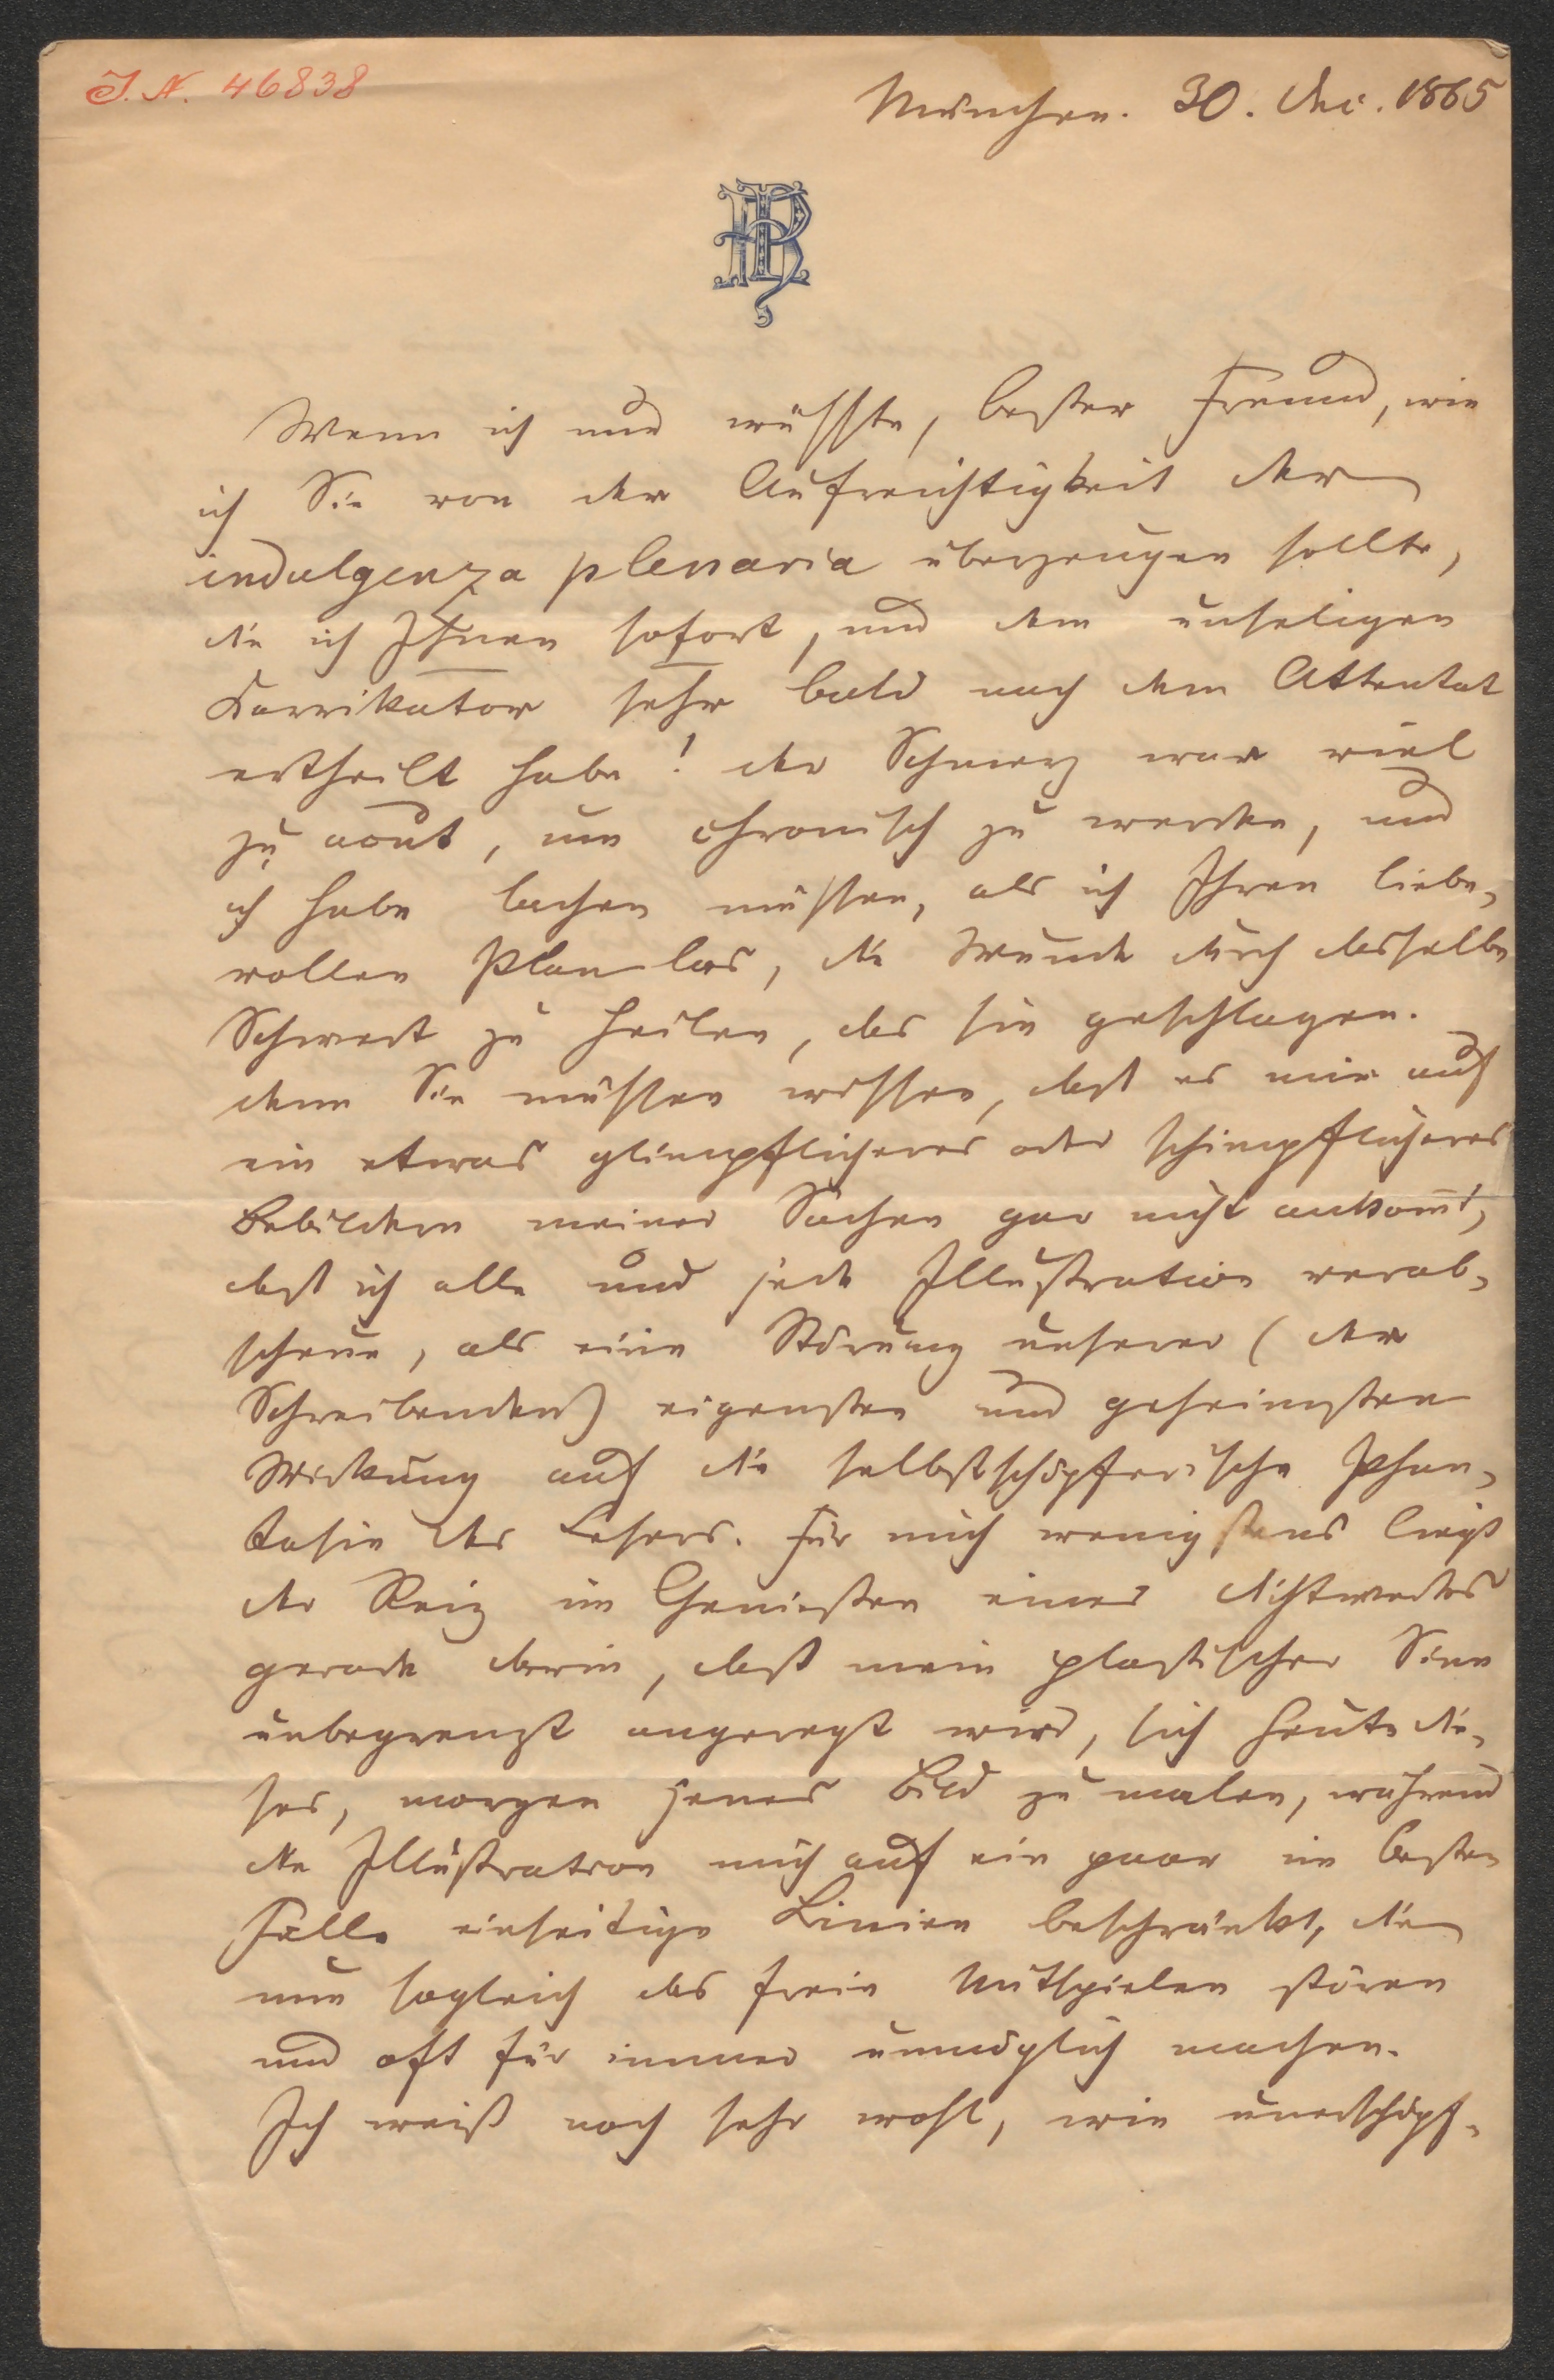 J. N. 46838
München. 30. Dec. 1865
PH
Wenn ich nur wüsste, bester Freund, wie
ich Sie von der Aufrichtigkeit der
indulgenza plenaria überzeugen sollte,
die ich Ihnen sofort, und dem unseligen
Karrikator sehr bald nach dem Attentat
ertheilt habe! Der Schmerz war viel
zu acut, um chronisch zu werden, und
ich habe lachen müssen, als ich Ihren liebe-
vollen Plan las, die Wunde durch dasselbe
Schwert zu heilen, das sie geschlagen.
Denn Sie müssen wissen, daß es mir auf
ein etwas glimpflicheres oder schimpflicheres
Bebildern meiner Sachen gar nicht ankom̄t,
daß ich alle und jede Illustration verab-
scheue, als eine Störung unserer (der
Schreibenden) eigensten und geheimsten
Wirkung auf die selbstschöpferische Phan-
tasie des Lesers. Für mich wenigstens liegt
der Reiz im Genießen eines Dichtwerkes
gerade darin, daß mein plastischer Sinn
unbegrenzt angeregt wird, sich heute die-
ses, morgen jenes Bild zu malen, während
die Illustration mich auf ein paar im besten
Falle einseitige Linien beschränkt, die
nun sogleich das freie Mitspielen stören
und oft für immer unmöglich machen.
Ich weiß noch sehr wohl, wie unerschöpf-